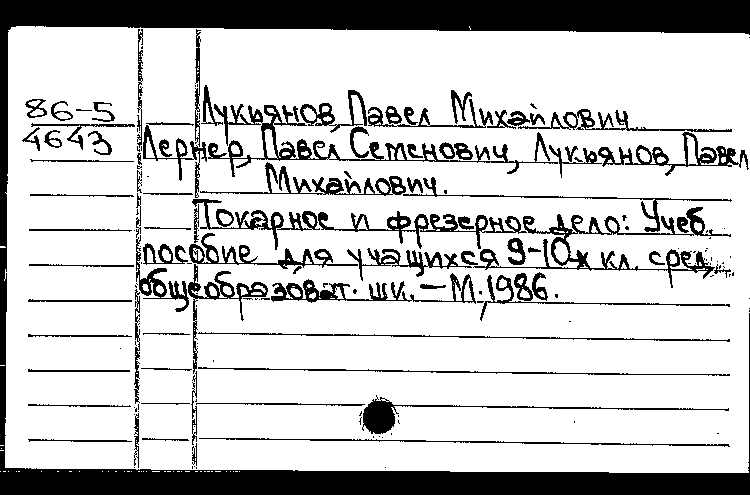 86-5 Лукьянов, Павел Михайлович
4643 Лернер, Павел Семенович, Лукьянов, Павел
Михайлович.
Токарное и фрезерное дело: Учеб.
пособие для учащихся 9-10-х кл. сред.
общеобразоват. шк. – М., 1986.